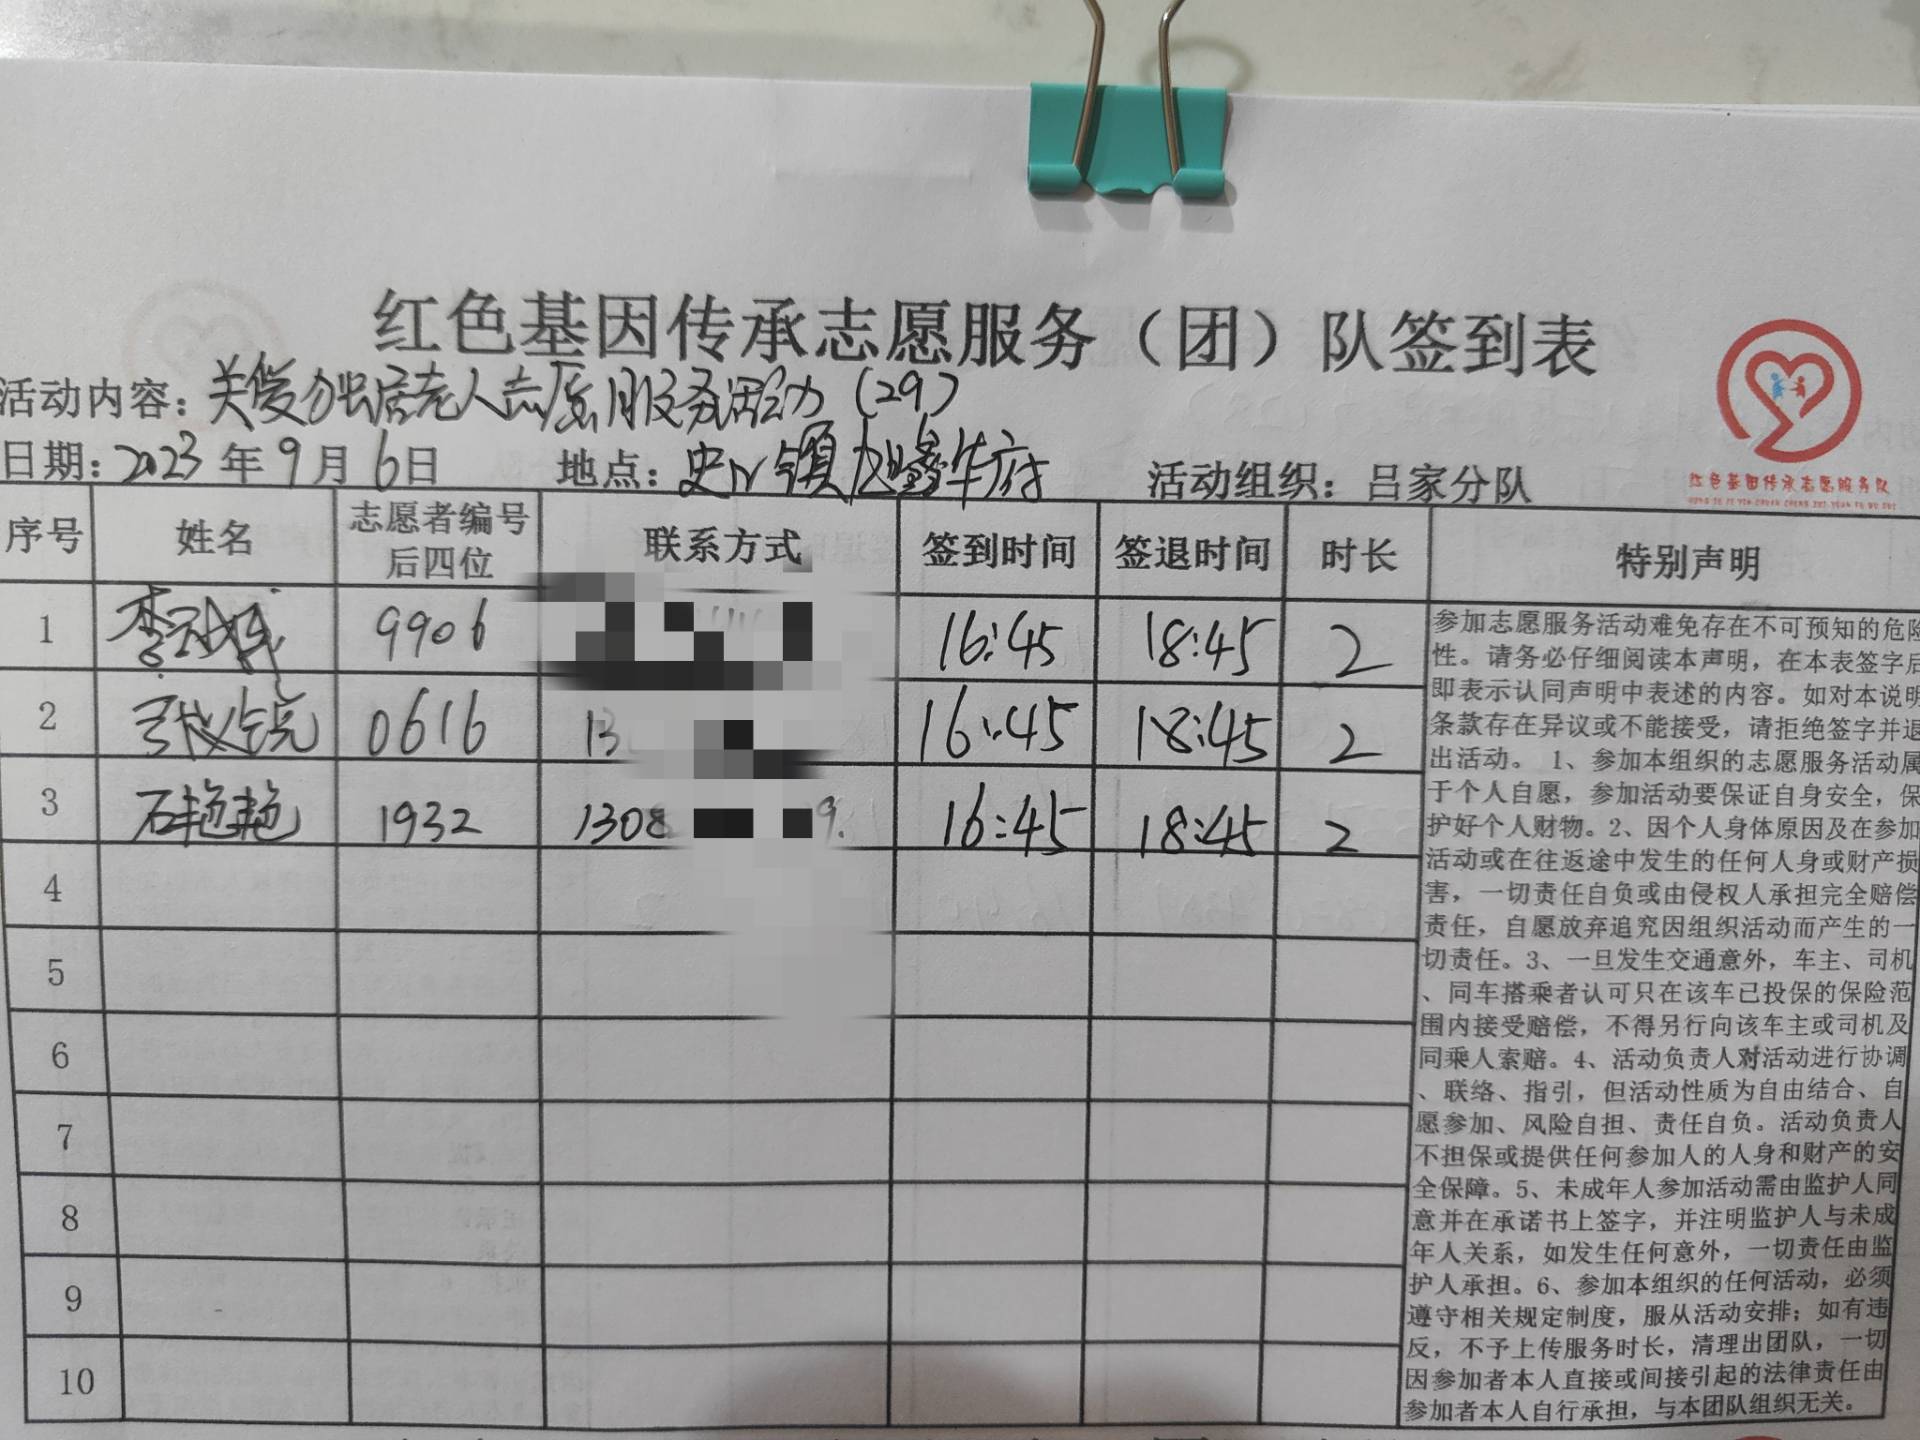 红色基因传承志愿服务（团）队签到表
活动内容：关爱独居老人志愿服务活动（29）
日期：2023年9月6日 地点：史 镇 鑫华府 活动组织：吕家分队
红色基因传承志愿服务队
HONG SE JI YIN CHUAN CHENG ZHI YUAN FU WU DUI
序号 姓名 志愿者编号后四位 联系方式 签到时间 签退时间 时长 特别声明
1 李 9906 16:45 18:45 2
2 0616 13 16:45 18:45 2
3 石艳艳 1932 1308 9. 16:45 18:45 2
4
5
6
7
8
9
10
参加志愿服务活动难免存在不可预知的危险
性。请务必仔细阅读本声明，在本表签字后
即表示认同声明中表述的内容。如对本说明
条款存在异议或不能接受，请拒绝签字并退
出活动。 1、参加本组织的志愿服务活动属
于个人自愿，参加活动要保证自身安全，保
护好个人财物。2、因个人身体原因及在参加
活动或在往返途中发生的任何人身或财产损
害，一切责任自负或由侵权人承担完全赔偿
责任，自愿放弃追究因组织活动而产生的一
切责任。3、一旦发生交通意外，车主、司机
、同车搭乘者认可只在该车已投保的保险范
围内接受赔偿，不得另行向该车主或司机及
同乘人索赔。4、活动负责人对活动进行协调
、联络、指引，但活动性质为自由结合、自
愿参加、风险自担、责任自负。活动负责人
不担保或提供任何参加人的人身和财产的安
全保障。5、未成年人参加活动需由监护人同
意并在承诺书上签字，并注明监护人与未成
年人关系，如发生任何意外，一切责任由监
护人承担。6、参加本组织的任何活动，必须
遵守相关规定制度，服从活动安排；如有违
反，不予上传服务时长，清理出团队，一切
因参加者本人直接或间接引起的法律责任由
参加者本人自行承担，与本团队组织无关。